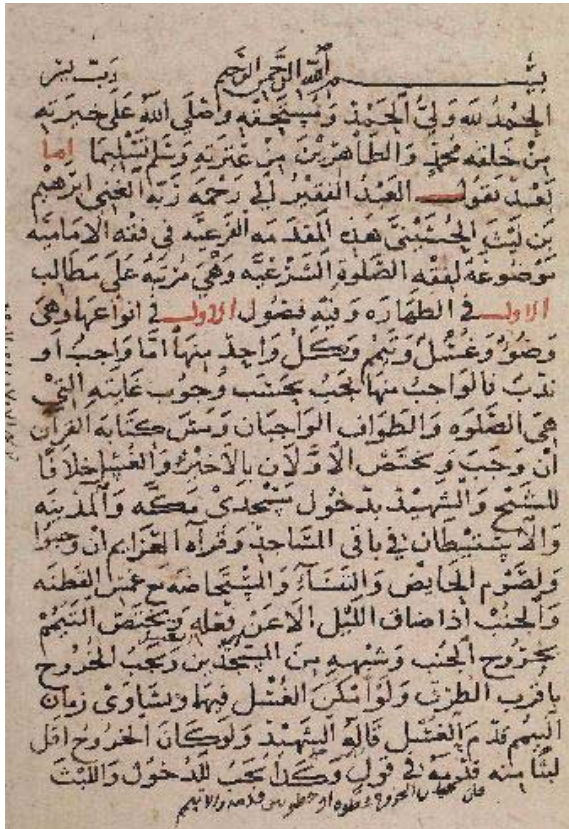 بسم الله الرحمن الرحيم رب يسر
الحمد لله ولي الحمد ومستحقه وصلى الله على خيرته
من خلقه محمد والطاهرين من عترته وسلم تسليما اما
بعد يقول العبد الفقير الى رحمة ربه الغني ابرهيم
بن ليث الحسيني هذه المقدمه الفرعيه في فقه الاماميه
موضوعة لفقه الصلوة الشرعيه وهي مرتبه على مطالب
الاول في الطهاره وفيه فصول الاول في انواعها وهي
وضوء وغسل وتيمم وكل واحد منها اما واجب او
ندب فالواجب منها يجب بحسب وجوب غايته التي
هي الصلوه والطواف الواجبان ومس كتابة القران
ان وجب ويختص الاولان بالاخير والغسل خلافا
للشيخ والشهيد بدخول مسجدي مكه والمدينه
والاستيطان في باقي المساجد وقرآه العزايم ان وجبوا
ولصوم الحايض والنفسآء والمستحاضه مع غمس القطنه
والجنب اذا ضاق الليل الا عن فعله ويختص التيمم
بخروج الجنب وشبهه من المسجدين ويجب الخروج
باقرب الطرق ولو امكن الغسل فيها وتساوى زمان
التيمم قدم الغسل قاله الشهيد ولو كان الخروج اقل
لبثا منه قدمه في قول وكذا يجب للدخول واللبث